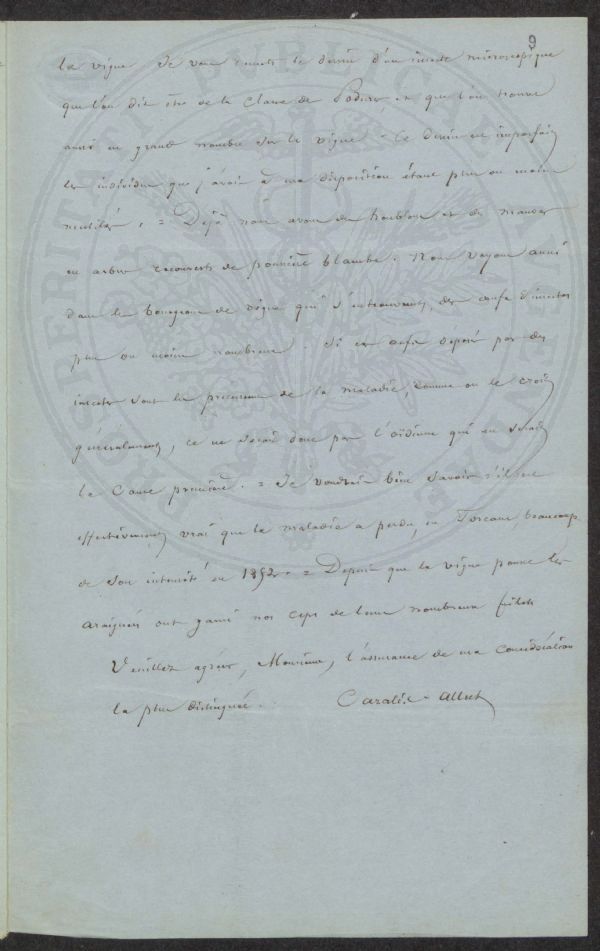 9
la vigne. Je vous envois le dessin d'un insecte microscopique
que l'on dit être de la classe de Podures et que l'on trouve
aussi en grand nombre sur la vigne. Ce dessin est imparfait
les individus que j'avais à ma disposition étant plus ou moins
mutilés. = Déjà nous avons du houblon et des mauves
en arbre recouverts de poussière blanche. Nous voyons aussi
dans les bourgeons de vigne qui s'entrouvrent, des œufs d'insectes
plus ou moins nombreux. Si ces œufs déposés par des
insectes sont les précurseurs de la maladie, comme on le croit
généralement, ce ne serait donc pas l'oïdium qui en serait
la cause première. = Je voudrais bien savoir s'il est
effectivement vrai que la maladie a perdu, en Toscane, beaucoup
de son intensité en 1852. = Depuis que la vigne pousse les
araignées ont garni nos ceps de leurs nombreux filets
Veuillez agréer, Monsieur, l'assurance de ma considération
la plus distinguée.
Cazalis-Allut
PROSPERITATI PUBLICAE